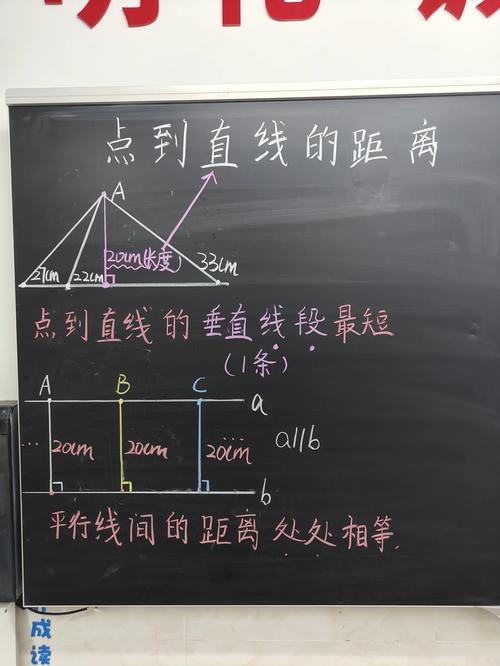 点到直线的距离
A
27cm 22cm 20cm(长度) 33cm
点到直线的垂直线段最短
(1条)
A B C a
... 20cm 20cm 20cm ... a∥b
b
平行线间的距离处处相等.
成读